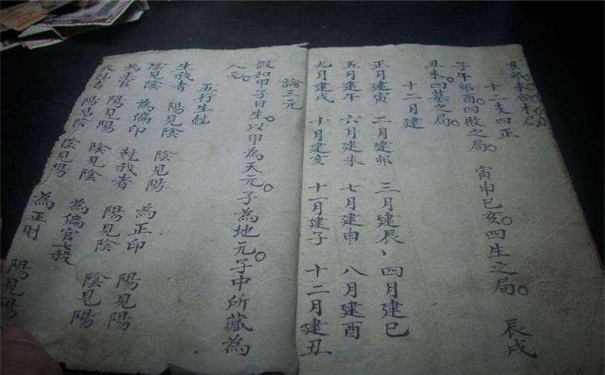 亥卯未合木局。
十二支四正
子午卯酉。四敗之局。 寅申巳亥。四生之局。 辰戌
丑未。四墓之局。
十二月建
正月建寅 二月建卯 三月建辰、四月建巳
五月建午 六月建未 七月建申 八月建酉
九月建戌 十月建亥 十一月建子 十二月建丑
論三元
假如甲子日生。以甲為天元。子為地元。子中所藏為
人元。
五行生尅
生我者 陽見陰 陰見陽 為正印 陽見陽
陰見陰 為偏印 尅我者 陽見陰 陰見陽
為正官 陽見陽 陰見陰 為偏官七殺
我尅者 陽見陰 陰見陽 為正財 陽見陽